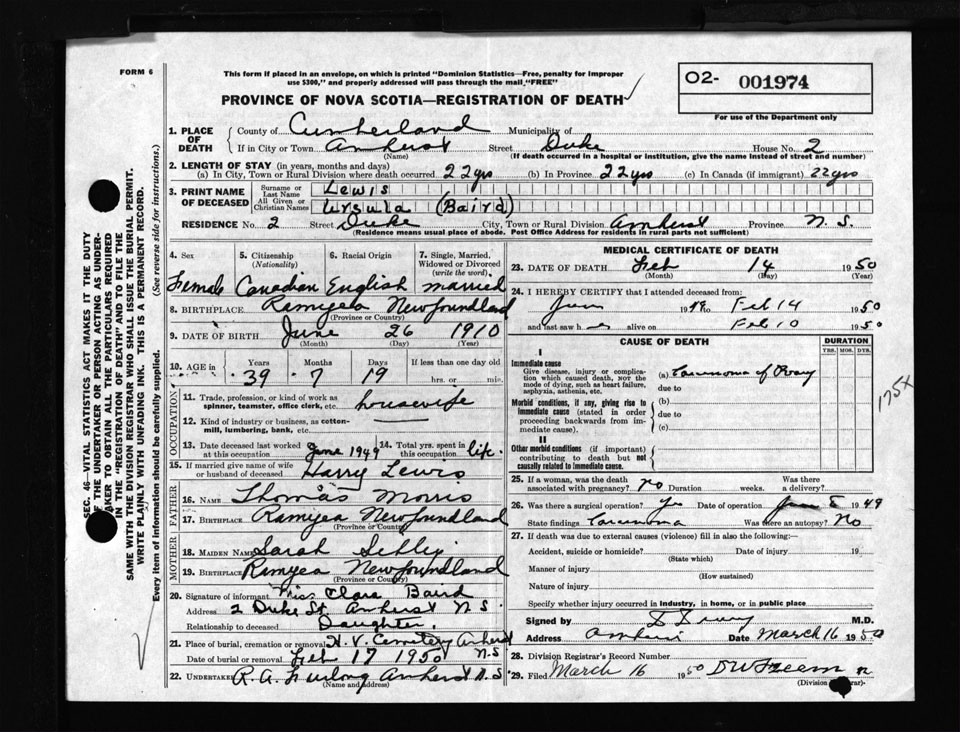 FORM 6
This form if placed in an envelope, on which is printed "Dominion Statistics—Free, penalty for improper
use $300," and properly addressed will pass through the mail "FREE"
PROVINCE OF NOVA SCOTIA—REGISTRATION OF DEATH
O2- 001974
For use of the Department only
SEC. 46—VITAL STATISTICS ACT MAKES IT THE DUTY
OF THE UNDERTAKER OR PERSON ACTING AS UNDER-
TAKER TO OBTAIN ALL THE PARTICULARS REQUIRED
IN THE "REGISTRATION OF DEATH" AND TO FILE THE
SAME WITH THE DIVISION REGISTRAR WHO SHALL ISSUE THE BURIAL PERMIT.
WRITE PLAINLY WITH UNFADING INK. THIS IS A PERMANENT RECORD.
Every item of information should be carefully supplied. (See reverse side for instructions.)
1. PLACE OF DEATH County of Cumberland Municipality of
If in City or Town Amherst Street Duke House No. 2
(Name) (If death occurred in a hospital or institution, give the name instead of street and number)
2. LENGTH OF STAY (in years, months and days)
(a) In City, Town or Rural Division where death occurred 22 yrs (b) In Province 22 yrs (c) In Canada (if immigrant) 22 yrs
3. PRINT NAME OF DECEASED Surname or Last Name Lewis
All Given or Christian Names Ursula (Baird)
RESIDENCE No. 2 Street Duke City, Town or Rural Division Amherst Province N.S.
(Residence means usual place of abode. Post Office Address for residents in rural parts not sufficient)
4. Sex 5. Citizenship (Nationality) 6. Racial Origin 7. Single, Married, Widowed or Divorced (write the word)
Female Canadian English married
8. BIRTHPLACE Ramyea Newfoundland
(Province or Country)
9. DATE OF BIRTH June 26 1910
(Month) (Day) (Year)
10. AGE in Years Months Days If less than one day old
39 7 19 hrs. or min.
OCCUPATION
11. Trade, profession, or kind of work as spinner, teamster, office clerk, etc. housewife
12. Kind of industry or business, as cotton-mill, lumbering, bank, etc.
13. Date deceased last worked at this occupation June 1949 14. Total yrs. spent in this occupation life.
15. If married give name of wife or husband of deceased Harry Lewis
FATHER
16. NAME Thomas Morris
17. BIRTHPLACE Ramyea Newfoundland
(Province or Country)
MOTHER
18. MAIDEN NAME Sarah
19. BIRTHPLACE Ramyea Newfoundland
(Province or Country)
20. Signature of informant Miss Clara Baird
Address 2 Duke St. Amherst N.S.
Relationship to deceased Daughter.
21. Place of burial, cremation or removal H.V. Cemetery Amherst N.S
Date of burial or removal Feb 17 1950
22. UNDERTAKER R. A. Furlong Amherst N.S
(Name and address)
MEDICAL CERTIFICATE OF DEATH
23. DATE OF DEATH Feb 14 1950
(Month) (Day) (Year)
24. I HEREBY CERTIFY that I attended deceased from:
June 1949 to Feb 14 1950
and last saw her alive on Feb 10 1950
CAUSE OF DEATH DURATION
YRS. MOS. DYS.
I
Immediate cause
Give disease, injury or complication which caused death, not the mode of dying, such as heart failure, asphyxia, asthenia, etc.
(a) Carcinoma of Ovary
due to
Morbid conditions, if any, giving rise to immediate cause (stated in order proceeding backwards from immediate cause).
(b)
due to
(c)
175X
II
Other morbid conditions (if important) contributing to death but not causally related to immediate cause.
25. If a woman, was the death associated with pregnancy? no Duration weeks. Was there a delivery?
26. Was there a surgical operation? Yes Date of operation June 8 1949
State findings Carcinoma Was there an autopsy? No
27. If death was due to external causes (violence) fill in also the following:
Accident, suicide or homicide? Date of injury 19
(State which)
Manner of injury
(How sustained)
Nature of injury
Specify whether injury occurred in industry, in home, or in public place
Signed by M.D.
Address Amherst Date March 16 1950
28. Division Registrar's Record Number
29. Filed March 16 1950
(Division Registrar.)